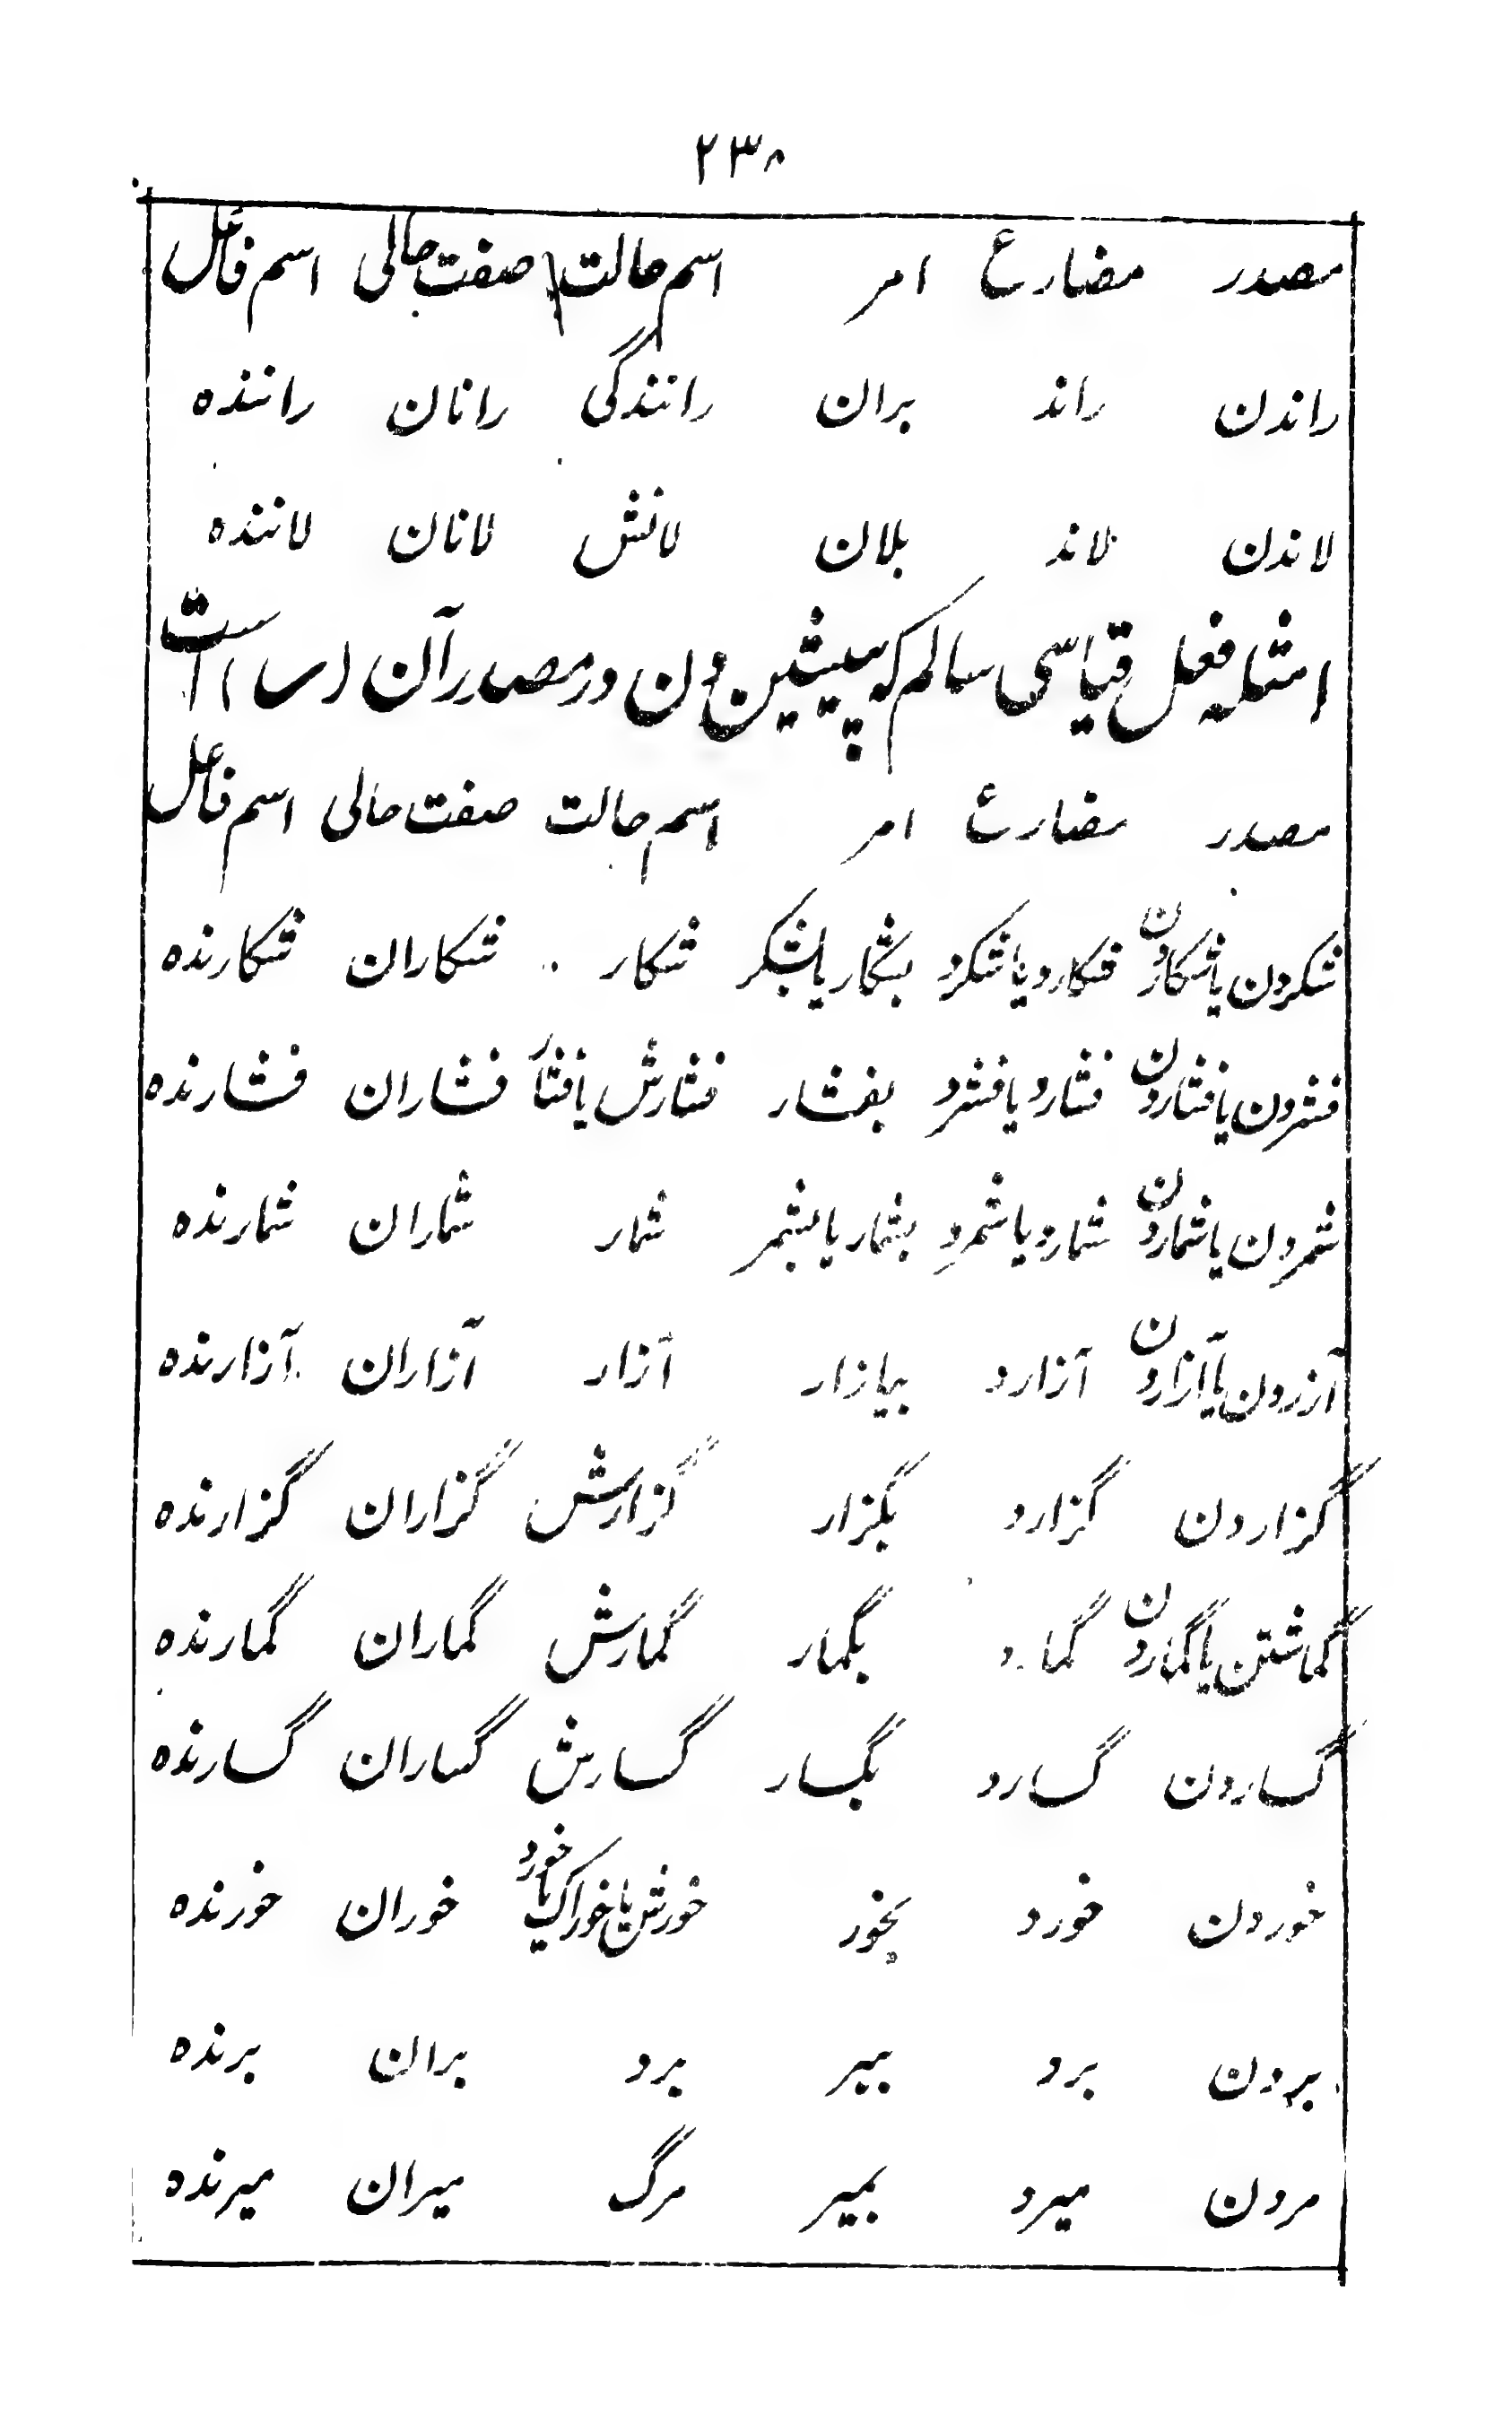 ۲۳۸
مصدر مضارع امر اسم حالت صفت حالی اسم فاعل
راندن راند بران رانندگی رانان راننده
لاندن لاند بلان لانش لانان لاننده
امثله فعل قیاسی سالم که پیشین دن در مصدر آن (ر) است
مصدر مضارع امر اسم حالت صفت حالی اسم فاعل
شکردن یا شکاردن شکارد یا شکرد بشکار یا بشکر شکار شکاران شکارنده
فشردن یا فشاردن فشارد یا فشرد بفشار فشارش یا فشار فشاران فشارنده
شمردن یا شماردن شمارد یا شمرد بشمار یا بشمر شمار شماران شمارنده
آزردن یا آزاردن آزارد بیازار آزار آزاران آزارنده
گزاردن گزارد بگزار گزارش گزاران گزارنده
گماشتن یا گماردن گمارد بگمار گمارش گماران گمارنده
گساردن گسارد بگسار گسارش گساران گسارنده
خوردن خورد بخور خورش یا خوراک یا خورد خوران خورنده
بردن برد ببر برد بران برنده
مردن میرد بمیر مرگ میران میرنده